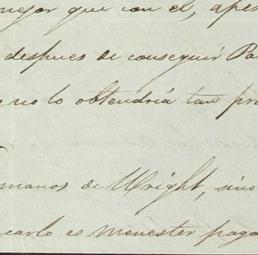 mejor que con el, apes
despues de conseguir Pa
no lo obtendria tan pro
manos de Wright, sino
carlo es menester paga